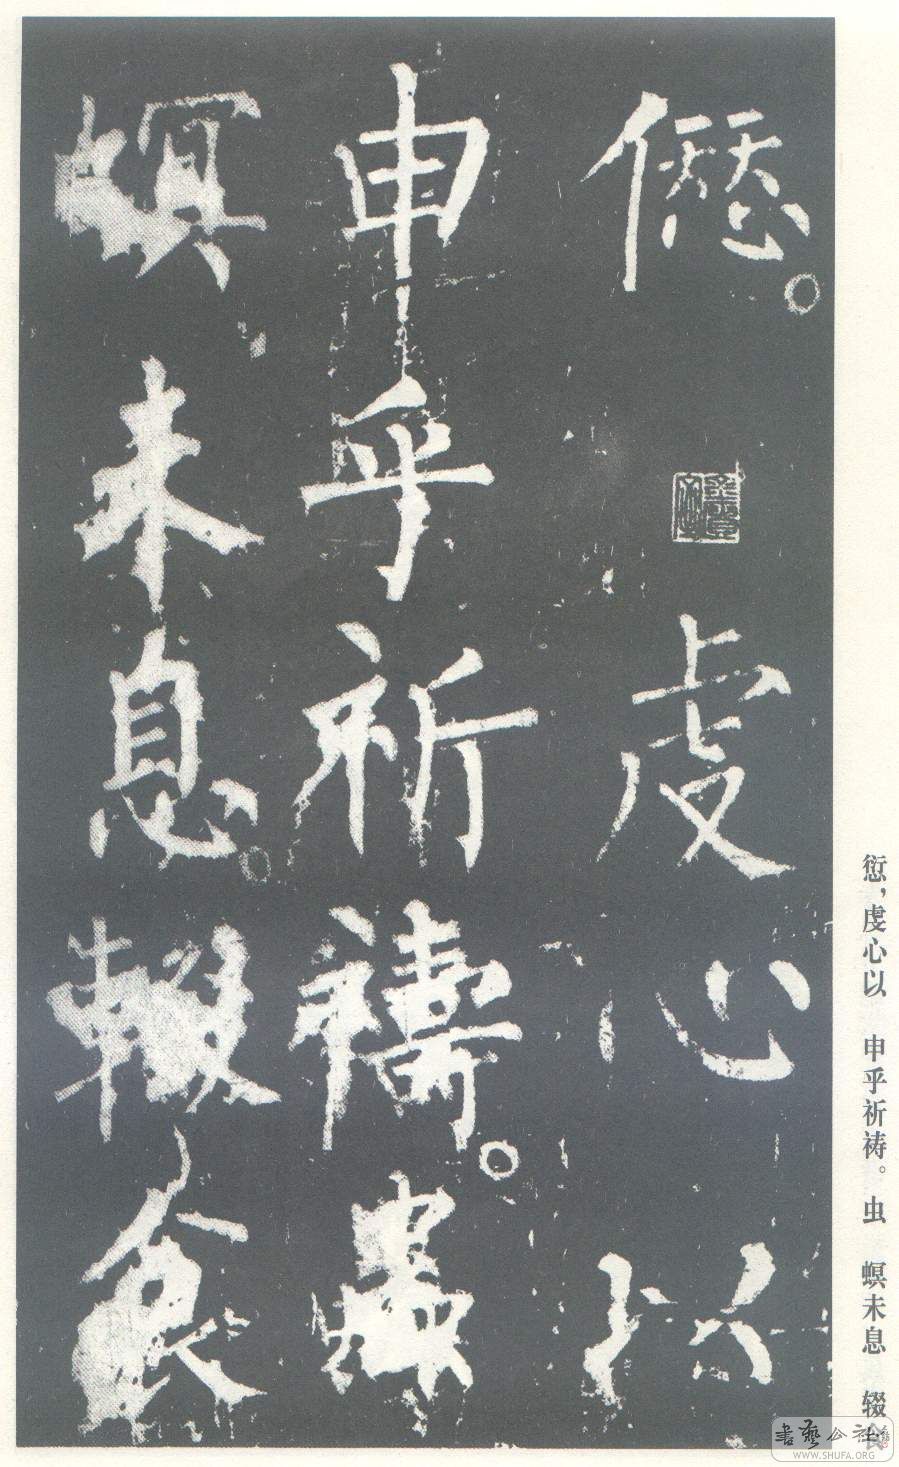 愆。虔心以
申乎祈禱。蟲
螟未息。輟食
愆，虔心以　申乎祈祷。虫　螟未息　辍食
書藝公社
WWW.SHUFA.ORG